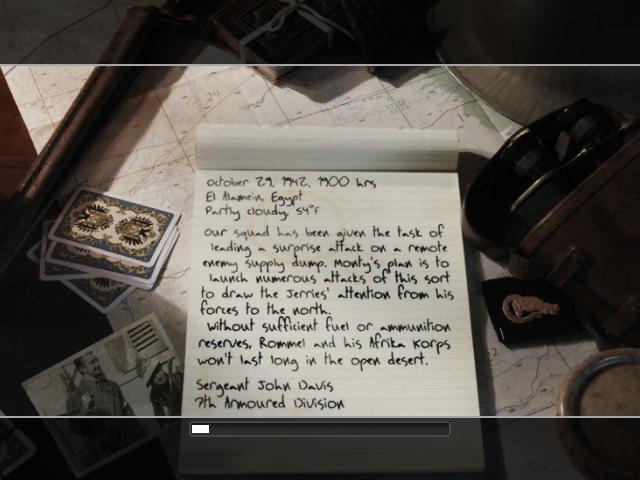 october 29, 1942, 1900 hrs
El Alamein, Egypt
Partly cloudy, 54°F
our squad has been given the task of
leading a surprise attack on a remote
enemy supply dump. Monty's plan is to
launch numerous attacks of this sort
to draw the Jerries' attention from his
forces to the north.
without sufficient fuel or ammunition
reserves, Rommel and his Afrika Korps
won't last long in the open desert.
Sergeant John Davis
7th Armoured Division